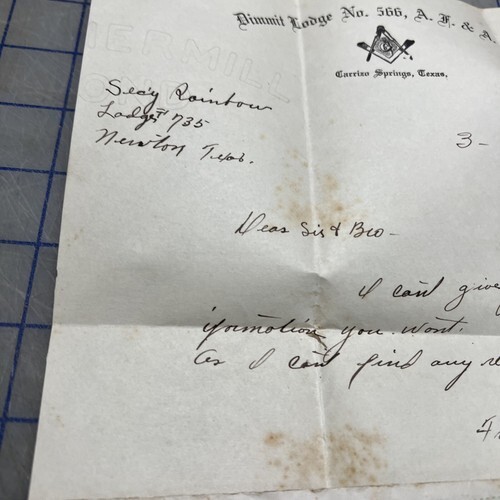 Dimmit Lodge No. 566, A. F. & A.
Carrizo Springs, Texas.
HAMMERMILL
BOND
Sec'y Rainbow
Lodge # 735
Newton Texas.
3-
Dear Sir & Bro -
I can't give
information you want.
As I can't find any re